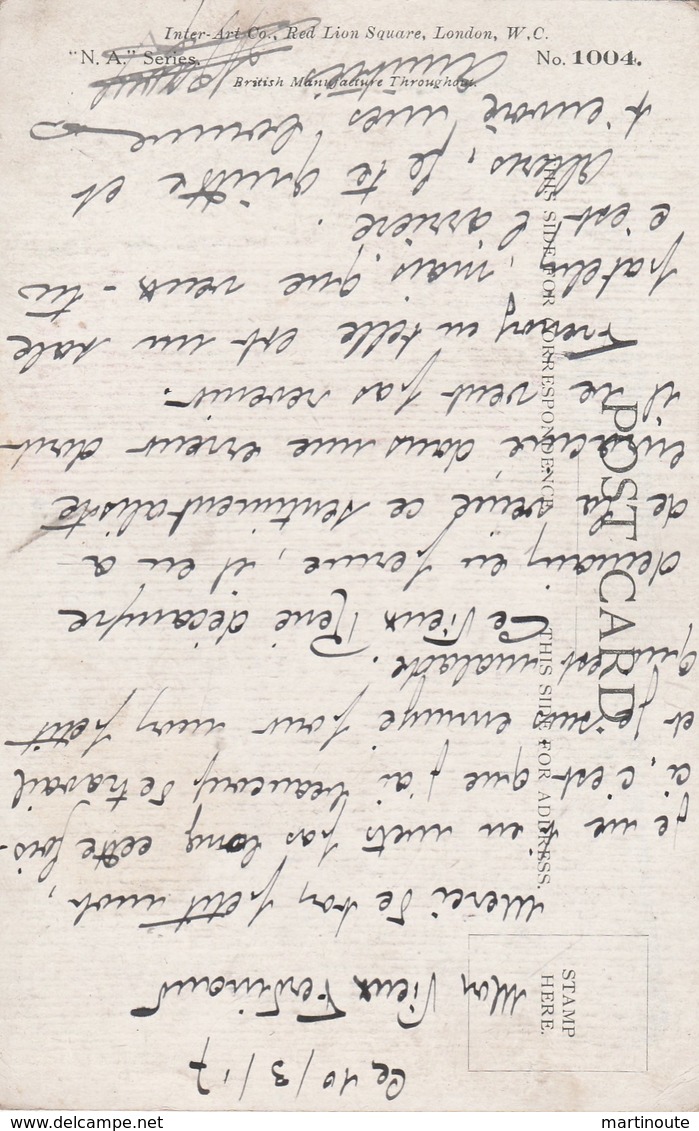 Inter-Art Co., Red Lion Square, London, W.C.
"N. A." Series.
No. 1004.
British Manufacture Throughout.
POST CARD
THIS SIDE FOR CORRESPONDENCE
THIS SIDE FOR ADDRESS.
STAMP
HERE.
Ce 10/3/17
Mon Vieux Ferdinand
Merci de ton petit mot,
je ne t'en mets pas long cette fois-
ci, c'est que j'ai beaucoup de travail
et je suis ennuyé pour mon petit
qui est malade.
Ce Vieux René décampe
demain en perme, il en a
de la veine ce sentimentaliste
enraciné dans une erreur dont
il ne veut pas revenir.
en telle est un sale
patelin, mais que veux-tu
c'est l'arrière.
Alors, je te quitte et
t'envoie mes bonnes
amitiés
delcampe.net
martinoute